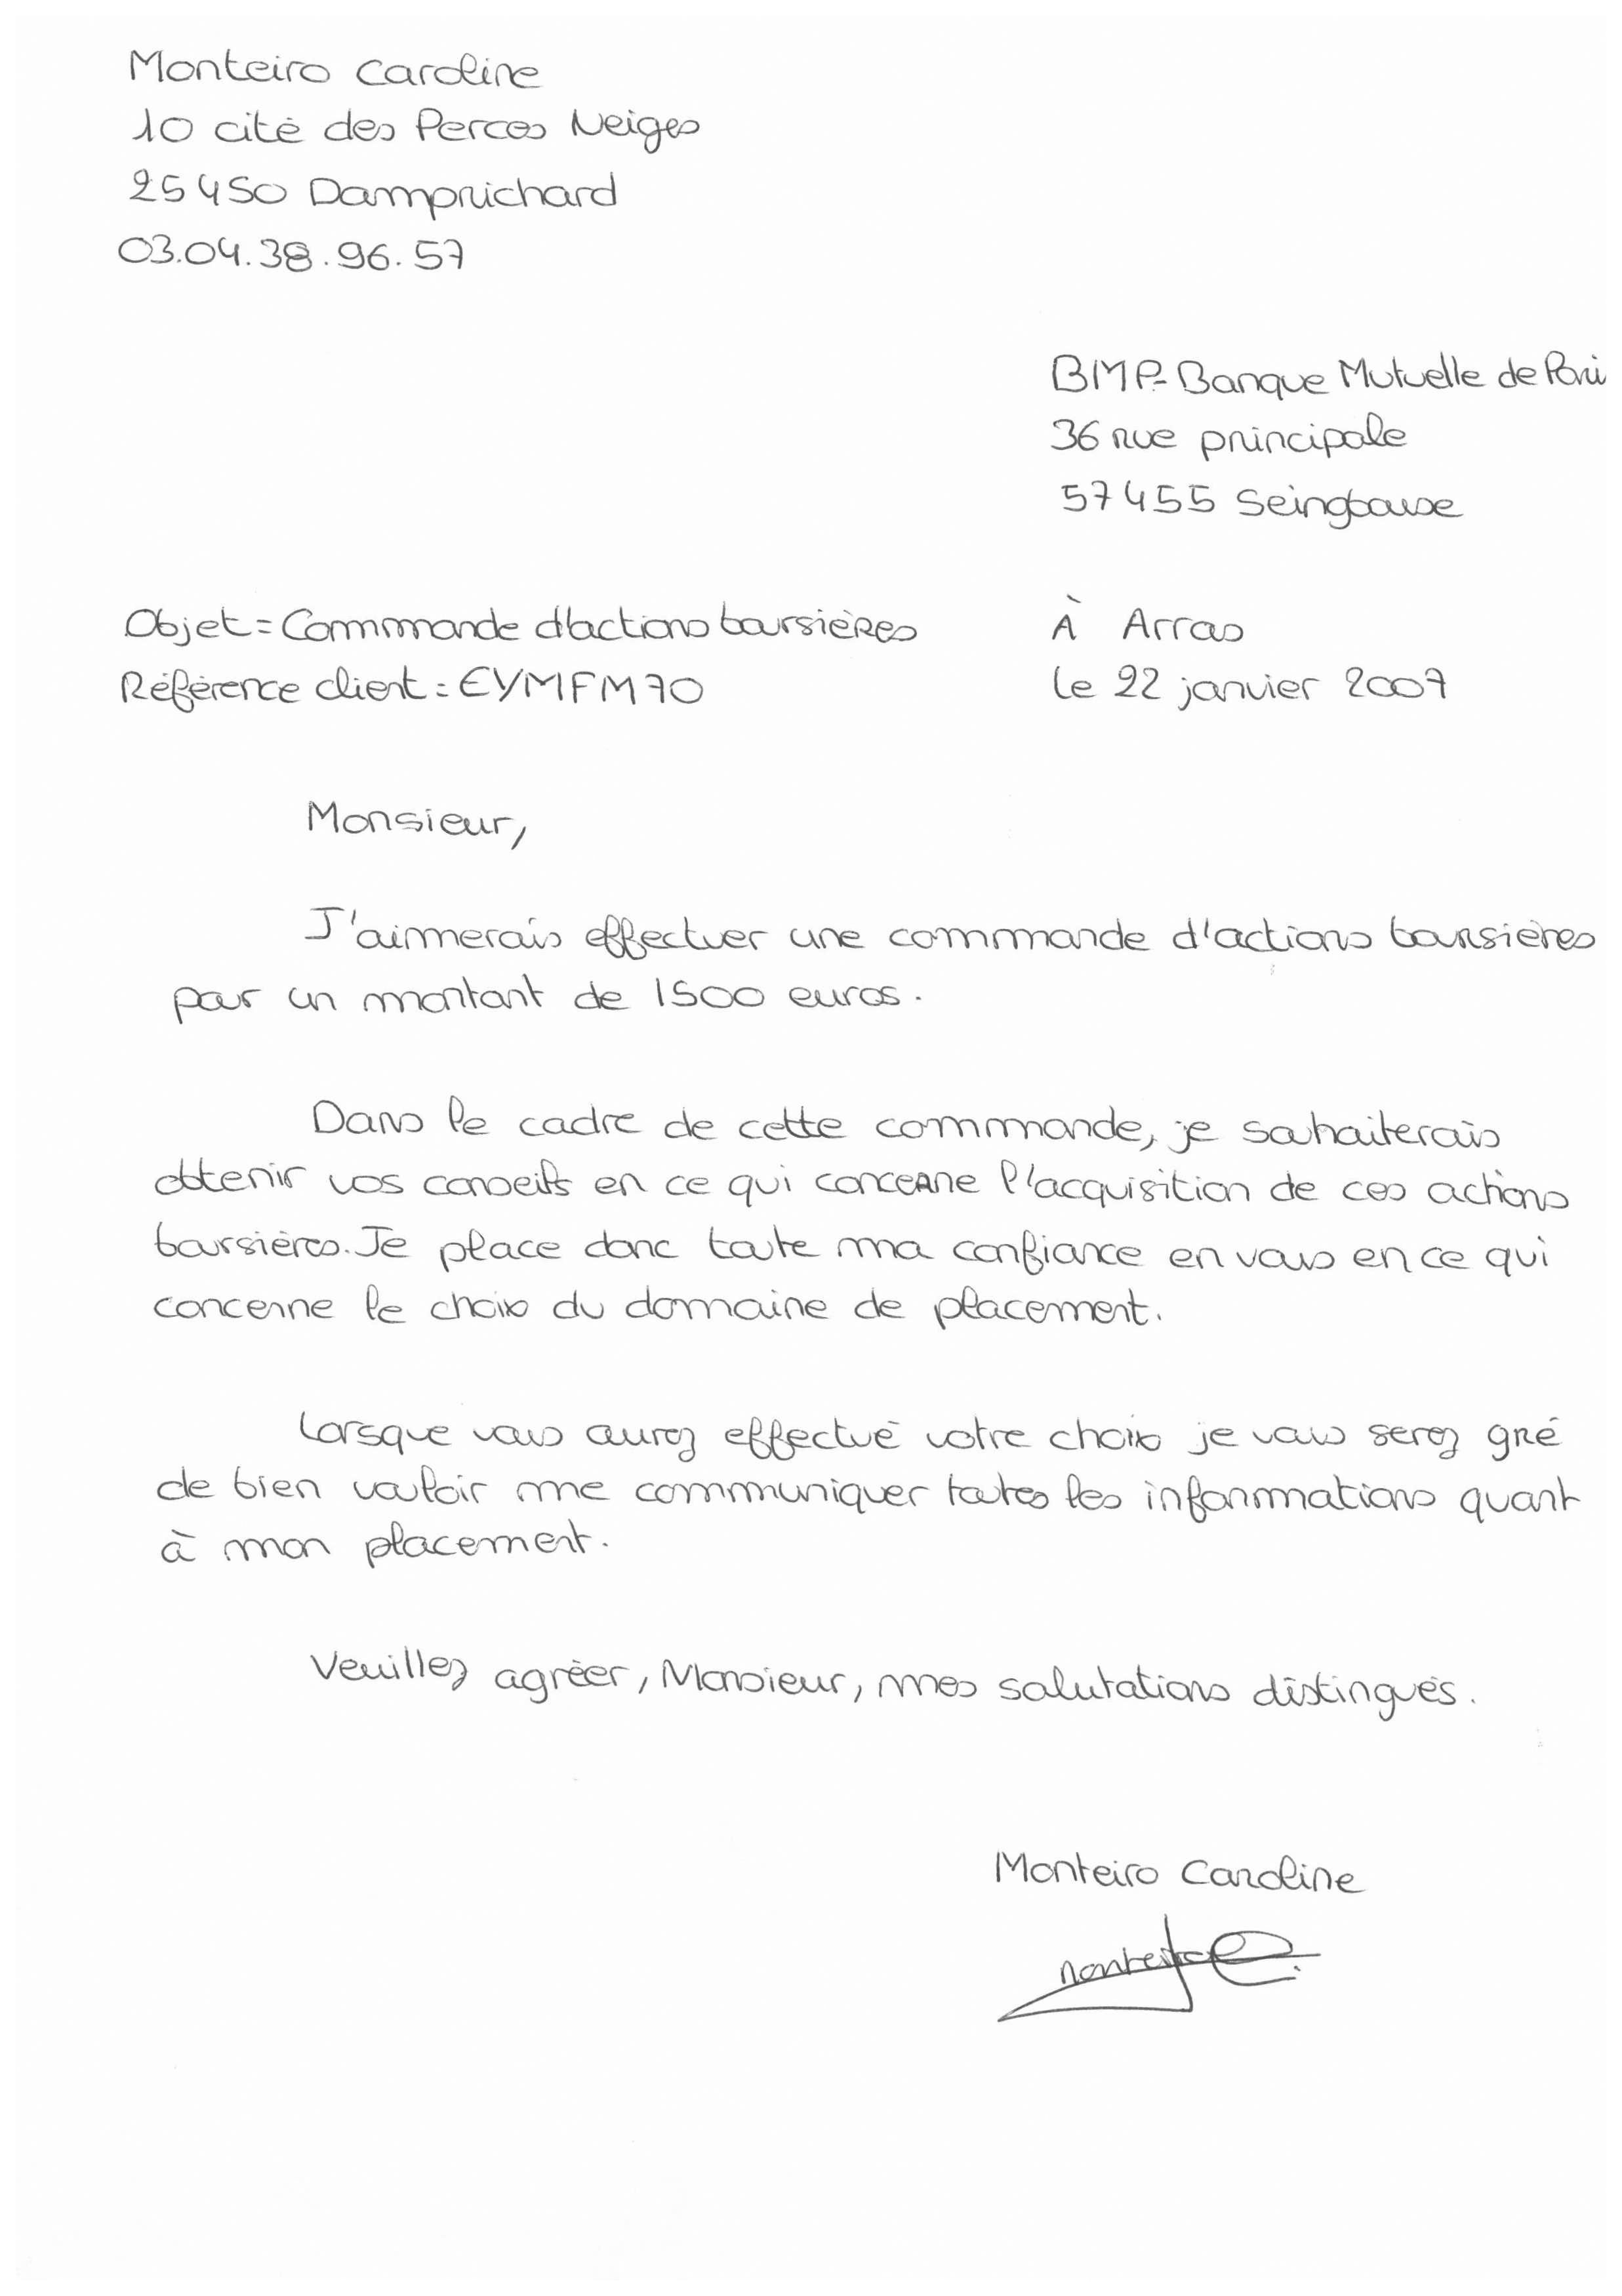 Monteiro Caroline
10 cité des Perces Neiges
25450 Damprichard
03.04.38.96.57
BMP-Banque Mutuelle de Pari
36 rue principale
57455 Seingbouse
Objet = Commande d'actions boursières
À Arras
Référence client : EYMFM70
le 22 janvier 2007
Monsieur,
J'aimerais effectuer une commande d'actions boursières
pour un montant de 1500 euros.
Dans le cadre de cette commande, je souhaiterais
obtenir vos conseils en ce qui concerne l'acquisition de ces actions
boursières. Je place donc toute ma confiance en vous en ce qui
concerne le choix du domaine de placement.
Lorsque vous aurez effectué votre choix je vous serez gré
de bien vouloir me communiquer toutes les informations quant
à mon placement.
Veuillez agréer, Monsieur, mes salutations distingués.
Monteiro Caroline